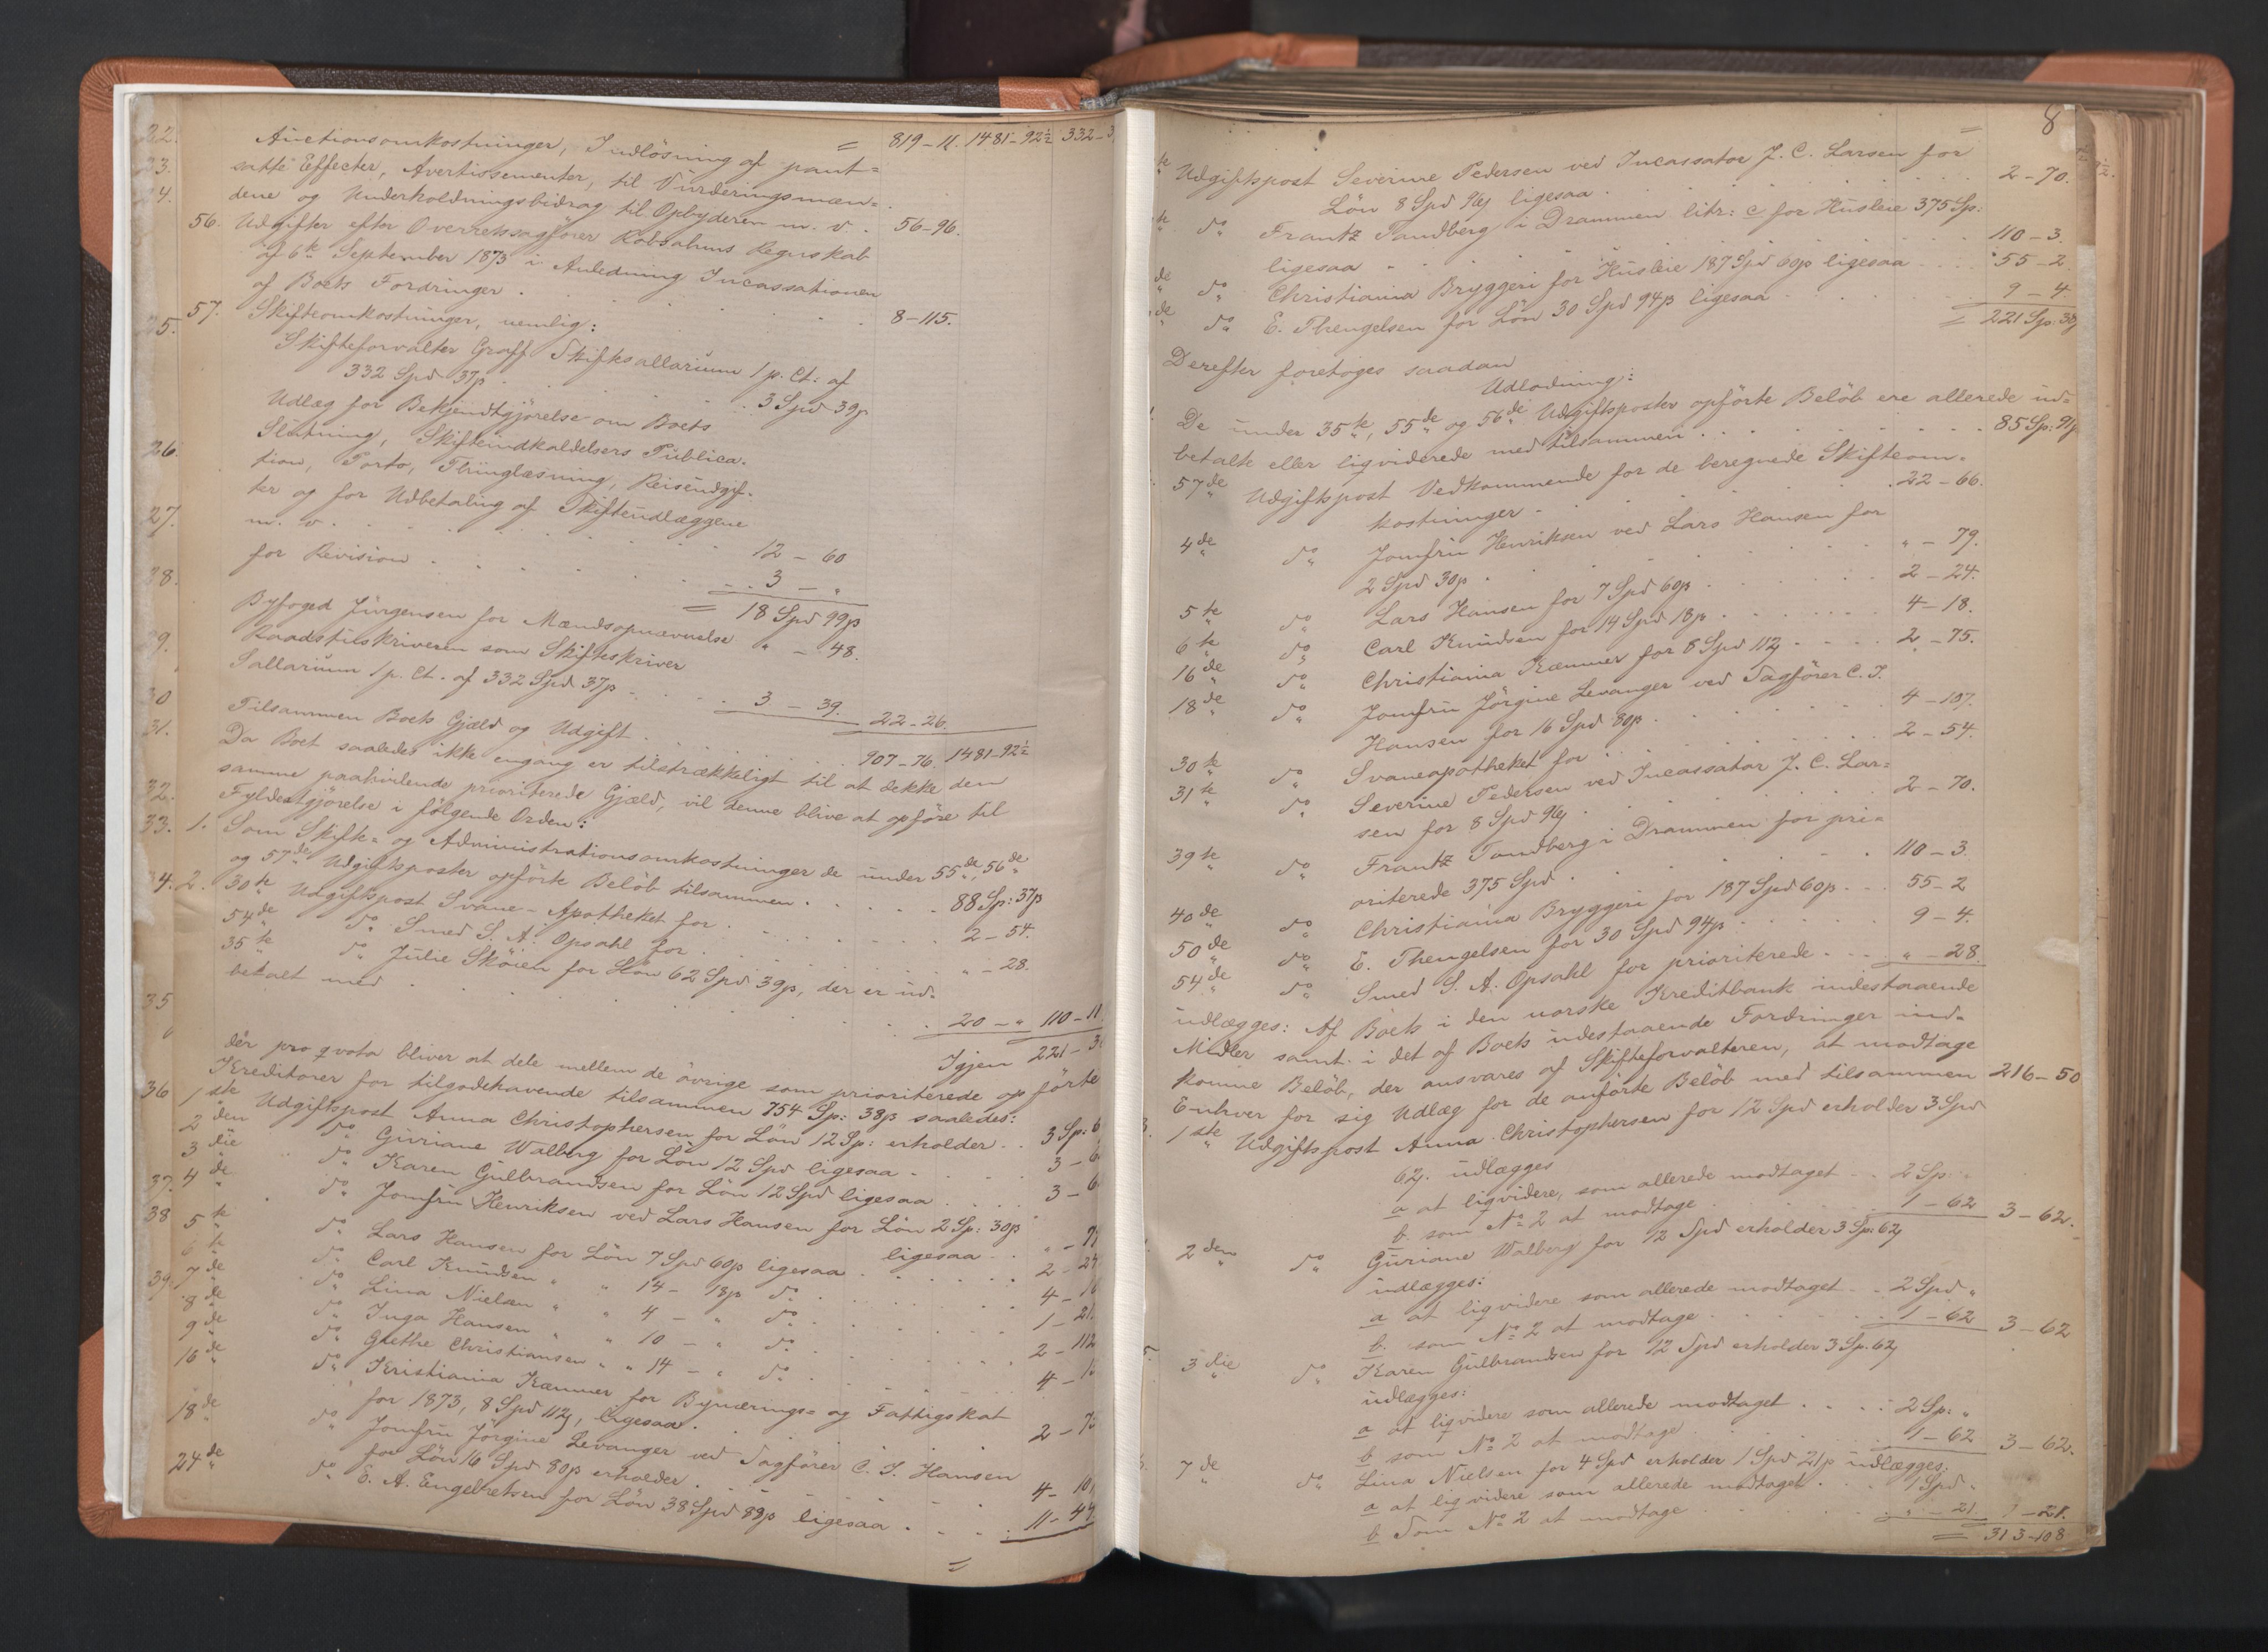 = 819-11. 1481-92½ 332-3
Auctionsomkostninger, Indlösning af pant=
satte Effecter, Avertissementer, til Vurderingsmæn=
dene og Underholdningsbidrag til Opbyderen m. v. . 56-96.
56. Udgifter efter Overretssagförer Robsahms Regnskab
af 6te September 1873 i Anledning Incassationen
af Boets Fordringer . . . . 8-115.
57. Skifteomkostninger, nemlig:
Skifteforvalter Graff Skiftesallarium 1 p. Ct: af
332 Spd 37p . . . 3 Spd 39p
Udlæg for Bekjendtgjörelse om Boets
Slutning, Skifteindkaldelsers Publica-
tion, Porto, Thinglæsning, Reiseudgif-
ter og for Udbetaling af Skifteudlæggene
m. v. . . . . 12 - 60
for Revision . . . . 3 - "
= 18 Spd 99p
Byfoged Jürgensen for Mændsopnævnelse " - 48.
Raadstueskriveren som Skifteskriver
Sallarium 1 p. Ct. af 332 Spd 37p . . . 3 - 39. 22-26.
Tilsammen Boets Gjæld og Udgift . . . 907-76. 1481-92½
Da Boet saaledes ikke engang er tilstrækkeligt til at dekke den
samme paahvilende prioriterede Gjæld, vil denne blive at opföre til
Fyldestgjörelse i fölgende Orden:
1. Som Skifte- og Administrationsomkostninger de under 55de, 56de
og 57de Udgiftsposter opförte Belöb tilsammen . . . 88 Sp: 37p
2. 30te Udgiftspost Svane-Apotheket for . . . 2-54.
54de do Smed S. A. Opsahl for . . . " - 28.
35te do Julie Sköien for Lön 62 Spd 39p, der er ud-
betalt med . . . 20 - " 110-11
Igjen 221-3
der pro qvota bliver at dele mellem de övrige som prioriterede opförte
Kreditorer for tilgodehavende tilsammen 754 Sp: 38p saaledes:
1ste Udgiftspost Anna Christophersen for Lön 12 Sp: erholder . . 3 Sp: 6
2den do Guriane Walberg for Lön 12 Spd ligesaa . 3 - 6
3die do Karen Gulbrandsen for Lön 12 Spd ligesaa . . . 3 - 6
4de do Jomfru Henriksen ved Lars Hansen for Lön 2 Sp: 30p
ligesaa . . " - 79
5te do Lars Hansen for Lön 7 Spd 60p ligesaa . . . 2 - 24
6te do Carl Knudsen " " 14 - 18p do . . . 4 - 18
7de do Lina Nielsen " " 4 - " do . . . 1 - 21.
8de do Inga Hansen " " 10 - " do . . . 2 - 112
9de do Grethe Christiansen " " 14 - " do . . . 4 - 1
16de do Kristiania Kæmner for Bynærings- og Fattigskat
for 1873, 8 Spd 112p, ligesaa . . . 2 - 75
18de do Jomfru Jörgine Levanger ved Sagförer C. J. Hansen
for Lön 16 Spd 80p erholder . . . 4 - 10
24de do E. A. Engebretsen for Lön 38 Spd 88p ligesaa . . . 11 - 44
=
8
Udgiftspost Severine Pedersen ved Incassator J. C. Larsen for
Lön 8 Spd 96p ligesaa . . . 2-70.
do Frantz Tandberg i Drammen litr: c for Husleie 375 Sp:
ligesaa . . . 110-3.
do Christiania Bryggeri for Husleie 187 Spd 60p ligesaa . . 55-2
do E. Thengelsen for Lön 30 Spd 94p ligesaa . . . 9-4.
= 221 Sp: 38p
Derefter foretoges saadan
Udlodning:
De under 35te, 55de og 56de Udgiftsposter opförte Belöb ere allerede ud-
betalte eller liqviderede med tilsammen . . . 85 Sp: 91p
57de Udgiftspost Vedkommende for de beregnede Skifteom-
kostninger . 22-66.
4de do Jomfru Henriksen ved Lars Hansen for
2 Spd 30p . . . " - 79.
5te do Lars Hansen for 7 Spd 60p . . . 2-24.
6te do Carl Knudsen for 14 Spd 18p . . . 4-18.
16de do Christiania Kæmner for 8 Spd 112p . . . 2-75.
18de do Jomfru Jörgine Levanger ved Sagförer C. J.
Hansen for 16 Spd 80p . . . 4-107.
30te do Svaneapotheket for . . . 2-54.
31te do Severine Pedersen ved Incassator J. C. Lar=
sen for 8 Spd 96p . . . 2-70.
39te do Frantz Tandberg i Drammen for pri=
oriterede 375 Spd . . . 110-3.
40de do Christiania Bryggeri for 187 Spd 60p . . . 55-2
50de do E. Thengelsen for 30 Spd 94p . . . 9-4.
54de do Smed S. A. Opsahl for prioriterede . . . " - 28.
udlægges: Af Boets i den norske Kreditbank indestaaende
Midler samt i det af Boets udestaaende Fordringer ind-
komne Belöb, der ansvares af Skifteforvalteren, at modtage
Enhver for sig Udlæg for de anförte Belöb med tilsammen 216-50
1ste Udgiftspost Anna Christophersen for 12 Spd erholder 3 Spd
62p. udlægges
a at liqvidere, som allerede modtaget . . 2 Sp: "
b. som No 2 at modtage . . . 1-62 3-62.
2den do Guriane Walberg for 12 Spd erholder 3 Sp: 62p
udlægges:
a at liqvidere som allerede modtaget . . 2 Spd "
b. som No 2 at modtage . . . 1-62 3-62
3die do Karen Gulbrandsen for 12 Spd erholder 3 Sp. 62p
udlægges:
a at liqvidere som allerede modtaget . . . 2 Sp: "
b som No 2 at modtage . . . 1-62 3-62.
7de do Lina Nielsen for 4 Spd erholder 1 Spd 21p udlægges:
a at liqvidere som allerede modtaget . . . 1 Spd "
b Som No 2 at modtage . . . " - 21. 1-21.
= 313-108